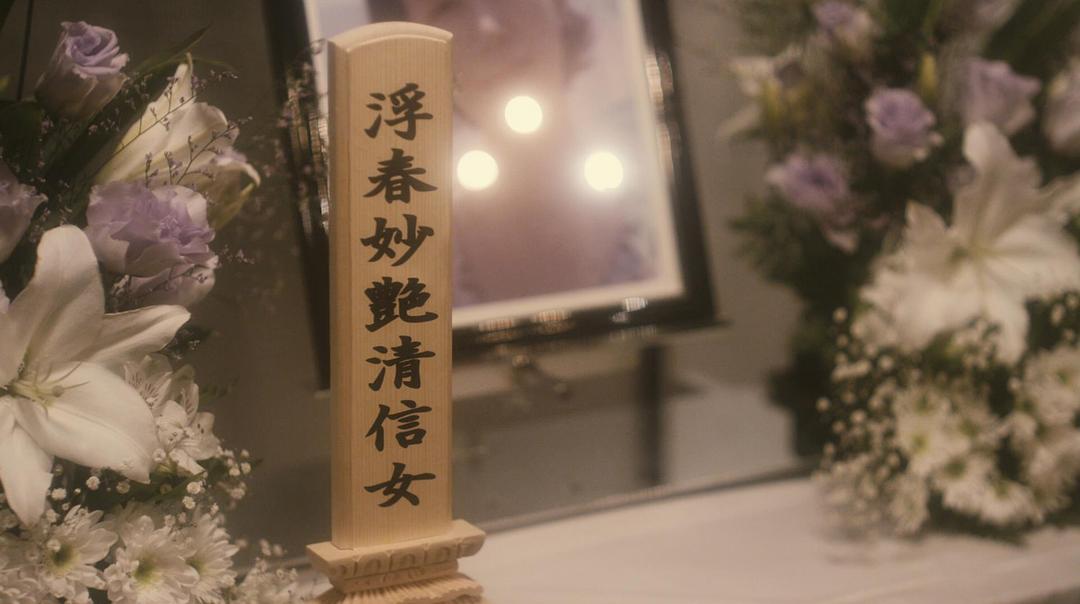 浮春妙艶清信女